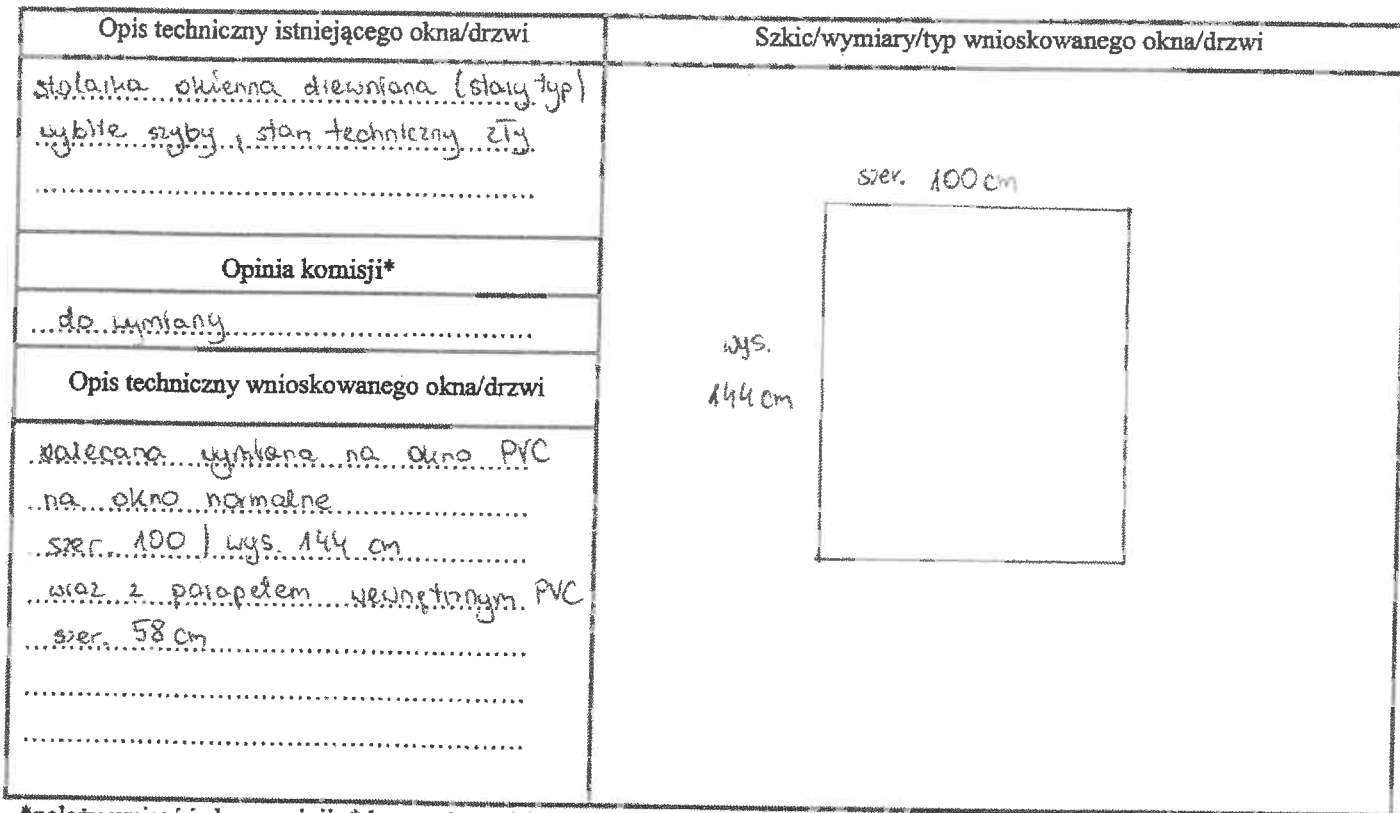 Opis techniczny istniejącego okna/drzwi
stolarka okienna drewniana (stary typ)
wybite szyby, stan techniczny zły
Opinia komisji*
do wymiany
Opis techniczny wnioskowanego okna/drzwi
zalecana wymiana na okno PVC
na okno normalne
szer. 100 | wys. 144 cm
wraz z parapetem wewnętrznym PVC
szer. 58 cm
Szkic/wymiary/typ wnioskowanego okna/drzwi
szer. 100 cm
wys.
144 cm